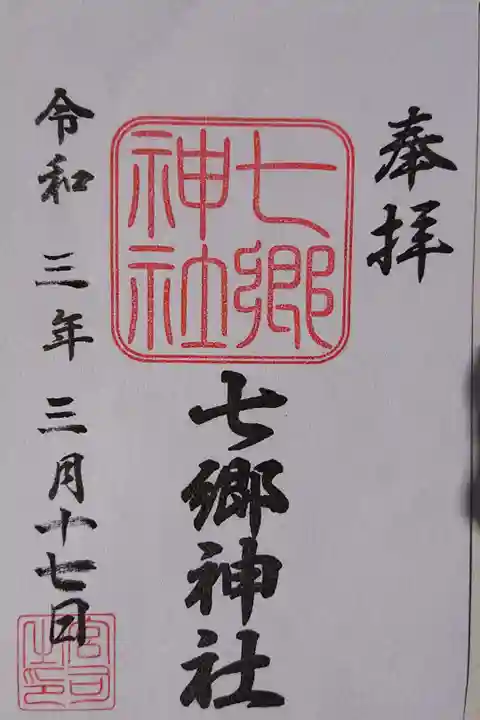 奉拝
七郷
神社
七郷神社
令和 三年 三月十七日
宮司
之印